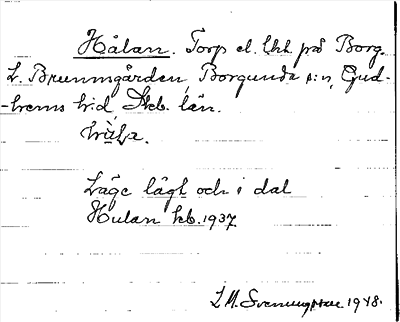 Hålan. Torp el. lht på Borg-
L. Brunnsgården, Borgunda s:n, Gud-
-hems hd, Skb. län.
Läge lågt och i dal
Hulan kb. 1937.
1948.